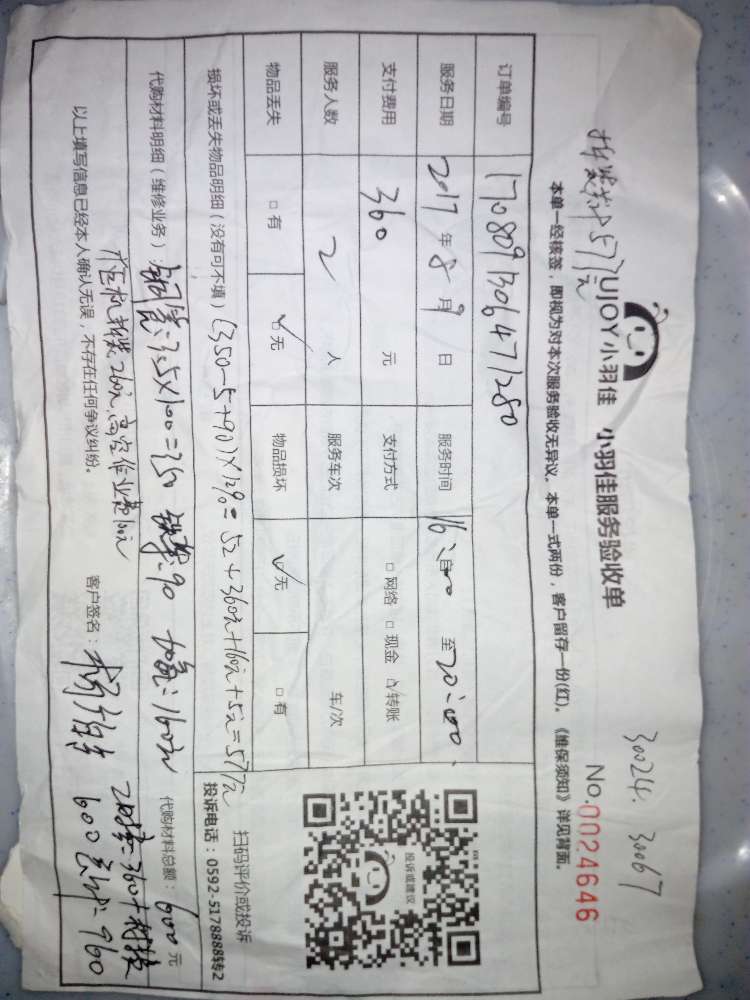 30024. 30067
UJOY小羽佳 小羽佳服务验收单
No.0024646
本单一经核签，即视为对本次服务验收无异议。本单一式两份，客户留存一份(红)。《维保须知》详见背面。
订单编号 1708091306471280
服务日期 2017年8月9日 服务时间 16:00至20:00
支付费用 360元 支付方式 □网络 □现金 ☑转账
服务人数 2人 服务车次 车/次
物品丢失 □有 ☑无 物品损坏 ☑无 □有
投诉或建议
扫码评价或投诉
投诉电话：0592-5178888转2
损坏或丢失物品明细（没有可不填）(350-5+90)×12%=52+360元+160元+5元=577元
代购材料明细（维修业务）：铜管:3.5×100=350 :90 加氟:160元 代购材料总额：600元
拆装260元,高空作业费100元
以上填写信息已经本人确认无误，不存在任何争议纠纷。 客户签名：
=360+材料
600 总计:960